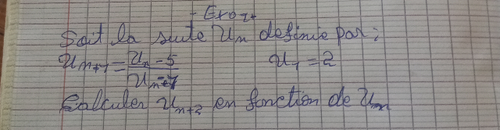 - Exo 2+
Soit la suite Un definie par:
Un+1 = Un - 5 / Un - 7    U1 = 2
Calculer Un+2 en fonction de Un